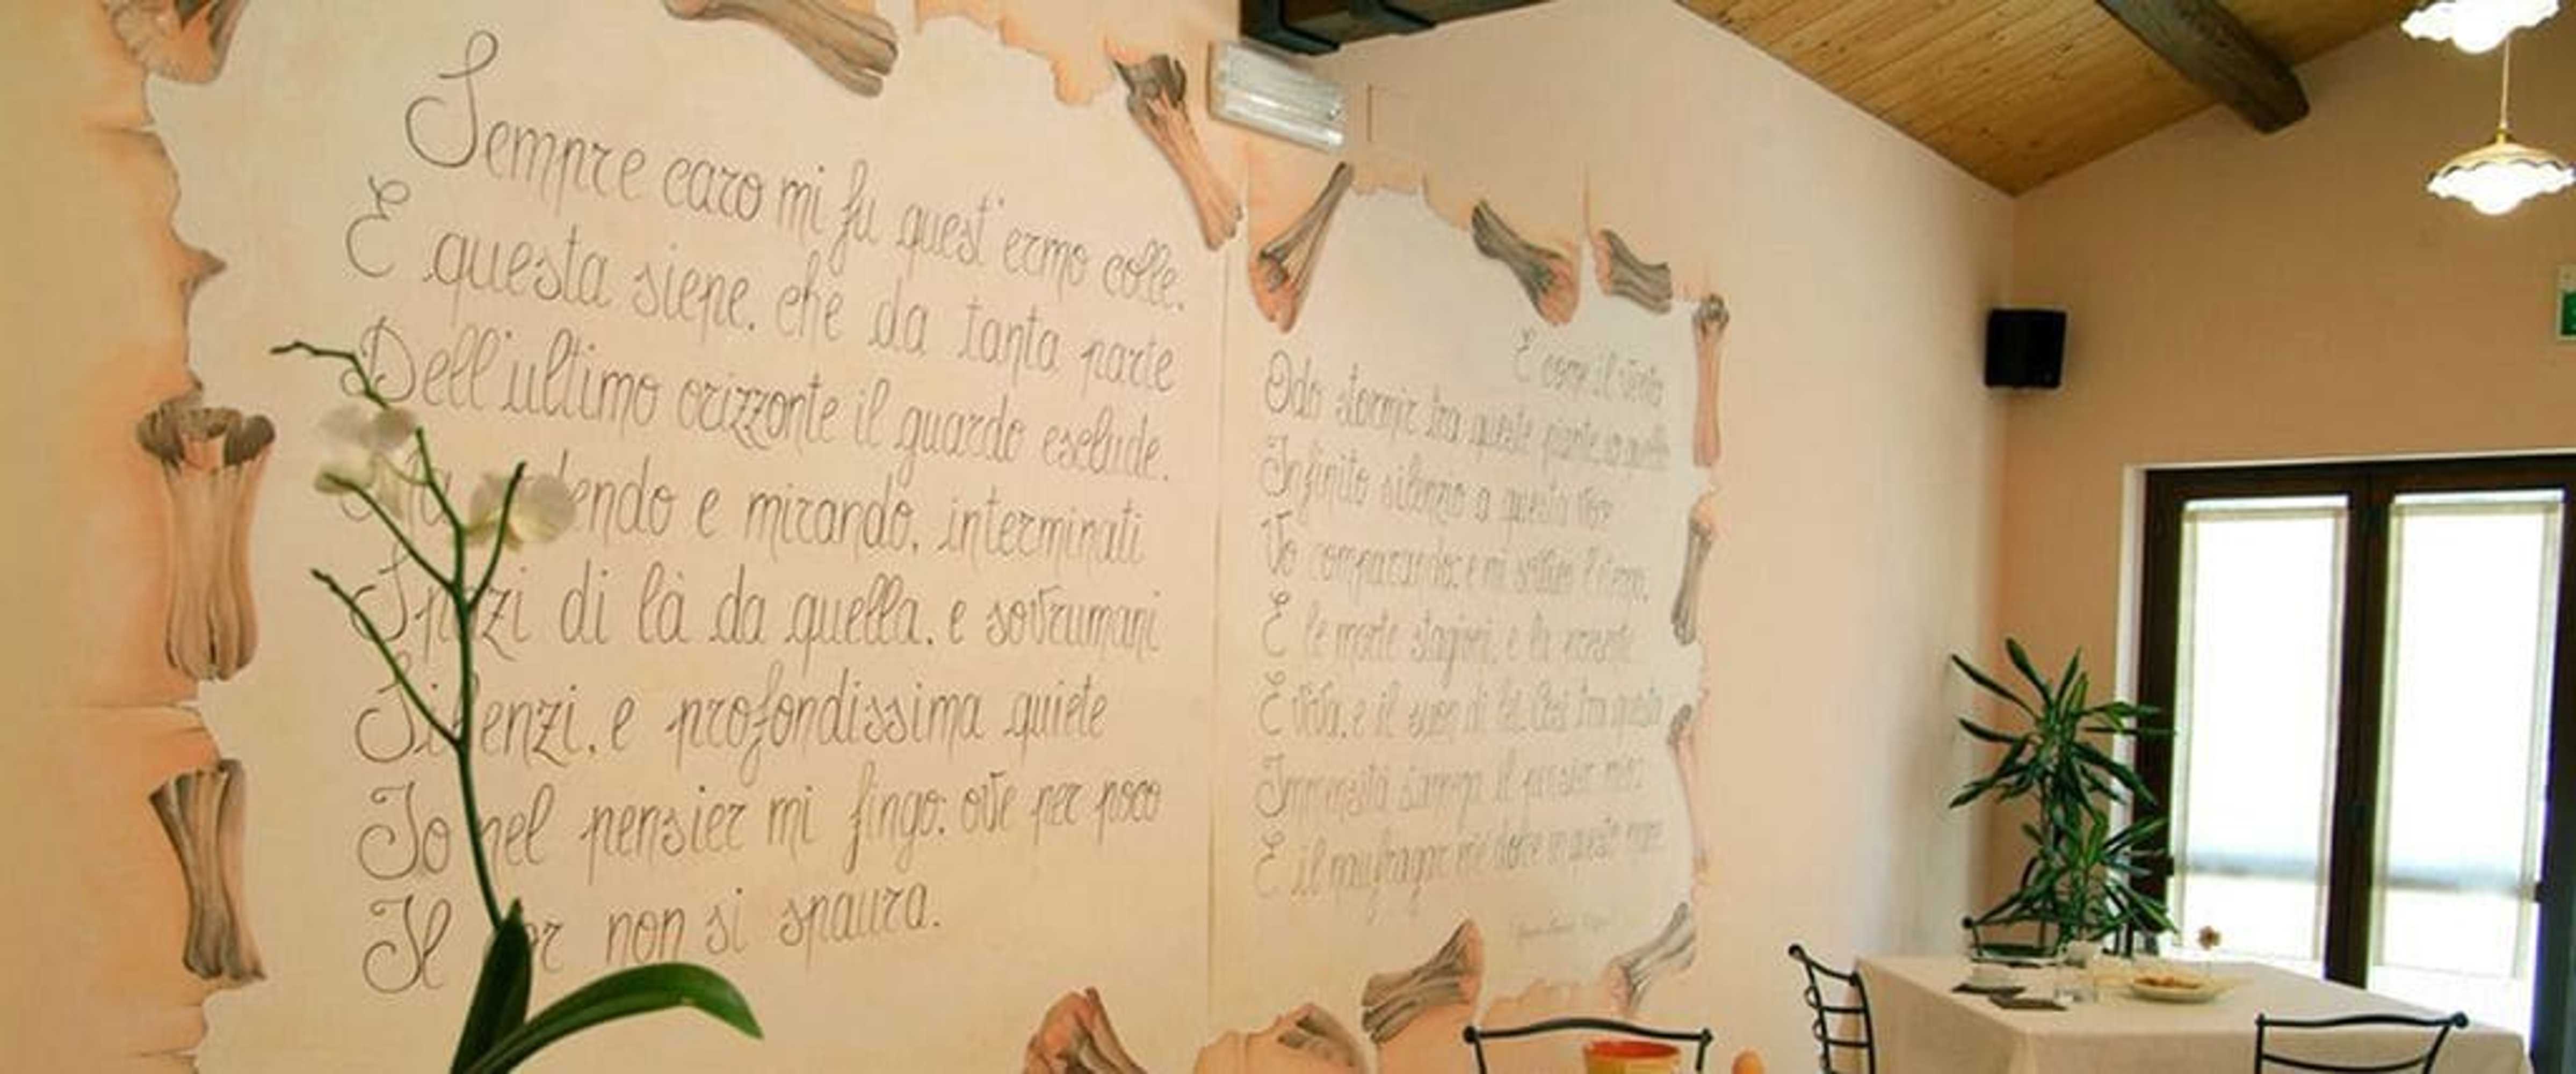 Sempre caro mi fu quest'ermo colle.
E questa siepe, che da tanta parte
Dell'ultimo orizzonte il guardo esclude.
e mirando, interminati
Spazi di là da quella, e sovrumani
Silenzi, e profondissima quiete
Io nel pensier mi fingo; ove per poco
Il cor non si spaura.
E come il vento
Odo stormir tra queste piante, io quello
Infinito silenzio a questa voce
Vo comparando: e mi sovvien l'eterno,
E le morte stagioni, e la presente
E viva, e il suon di lei. Così tra questa
Immensità s'annega il pensier mio:
E il naufragar m'è dolce in questo mare.